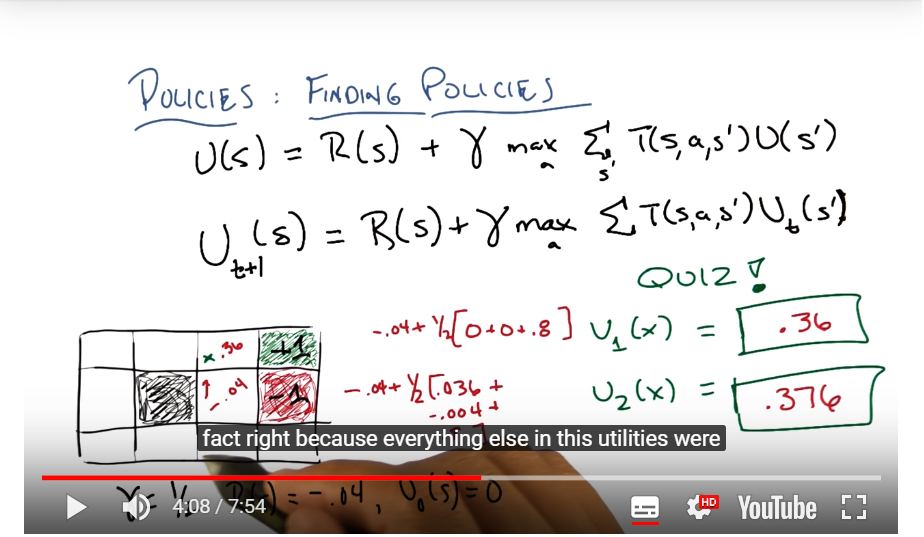 POLICIES : FINDING POLICIES
U(s) = R(s) + γ max_a Σ_s' T(s,a,s')U(s')
U_t+1(s) = R(s) + γ max_a Σ T(s,a,s')U_t(s')
QUIZ!
-.04 + ½[0+0+.8] U₁(x) = .36
x .36 +1
-.04 + ½[.036 + U₂(x) = .376
-.004 +
↑ -.04 -1
fact right because everything else in this utilities were
γ = ½ = -.04, U₀(s)=0
4:08 / 7:54 HD YouTube